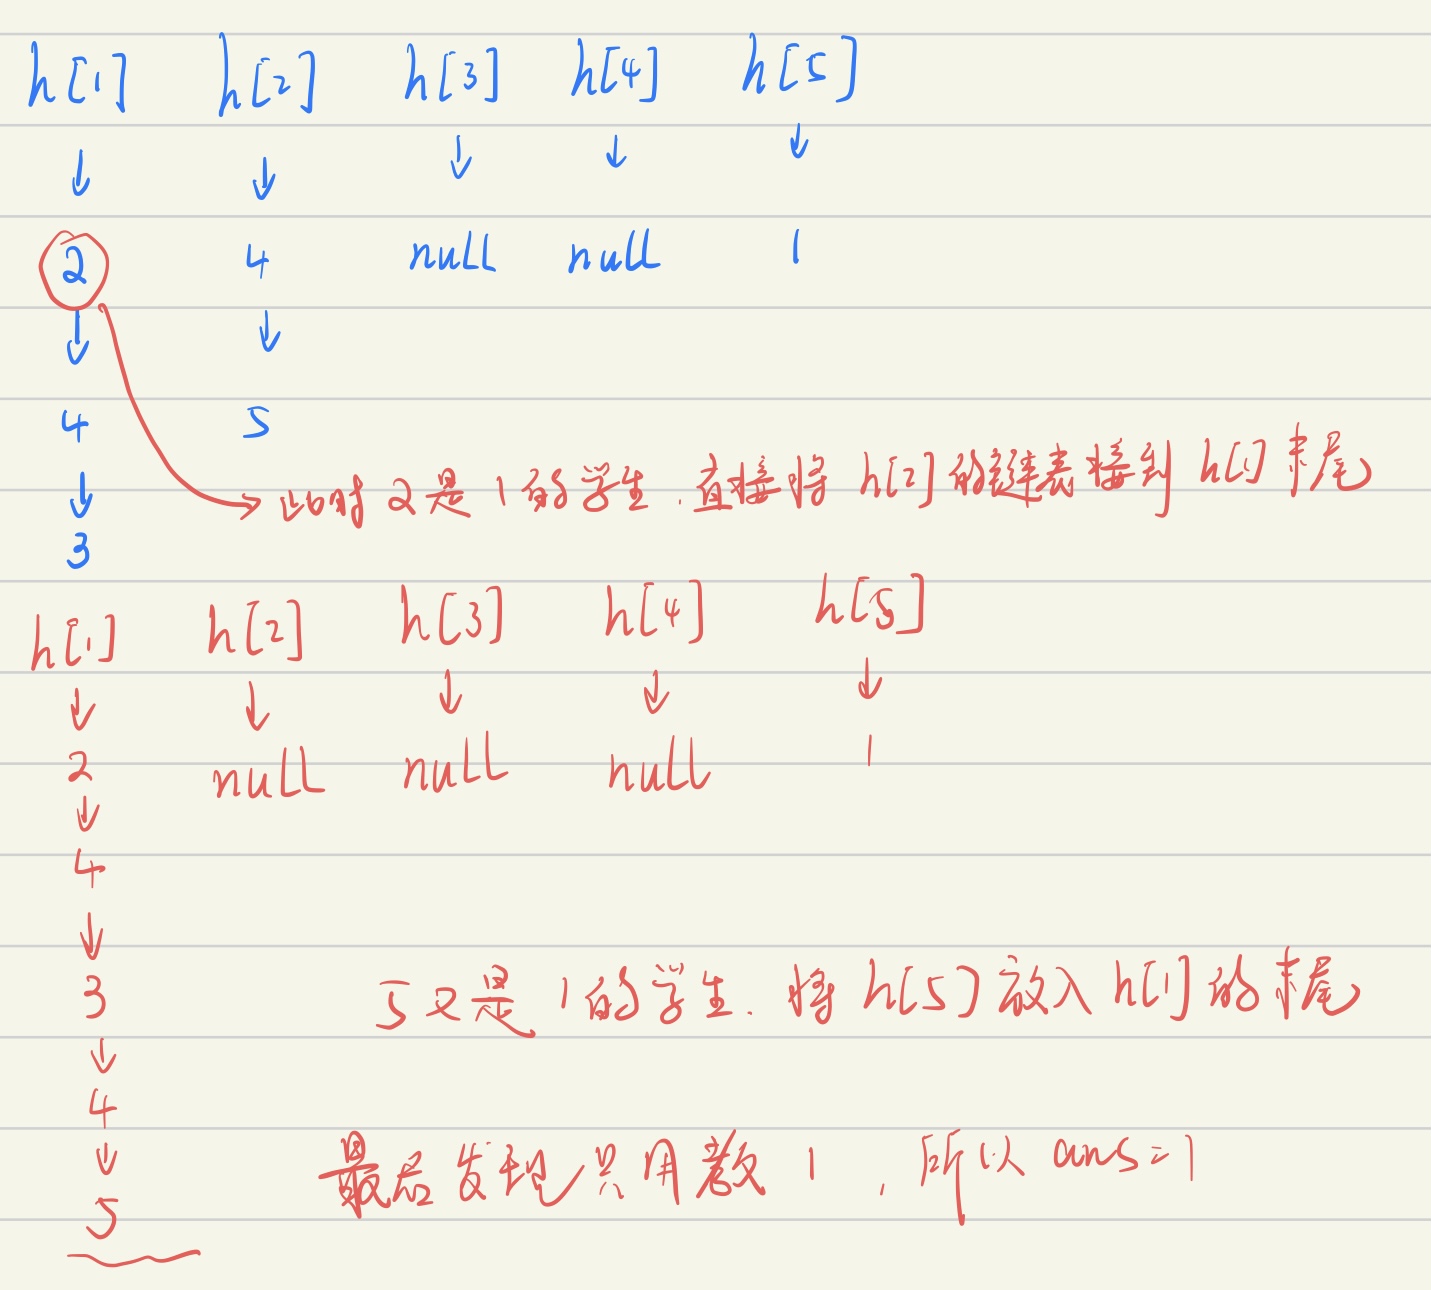 h[1] h[2] h[3] h[4] h[5]
↓ ↓ ↓ ↓ ↓
2 4 null null 1
↓ ↓
4 5
↓
此时2是1的学生.直接将h[2]的链表接到h[1]末尾
3
h[1] h[2] h[3] h[4] h[5]
↓ ↓ ↓ ↓ ↓
2 null null null 1
↓
4
↓
3
5又是1的学生.将h[5]放入h[1]的末尾
↓
4
↓
最后发现只用教1,所以ans=1
5